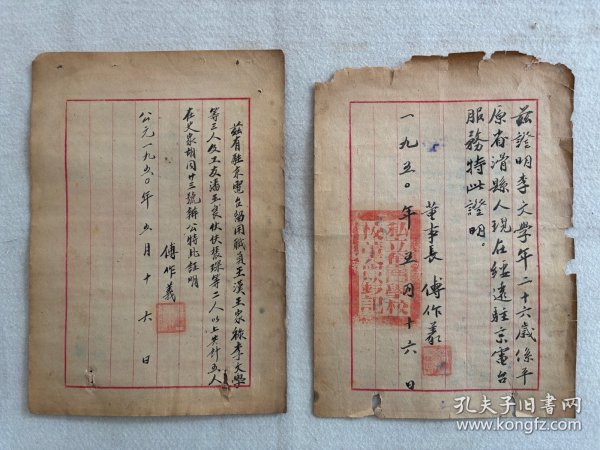 茲證明李文學年二十六歲係平
原省滑縣人現在綏遠駐京電台
服務特此證明。
董事長 傅作義
一九五〇年五月十六日
茲有駐京電台留用職員王漢王家祿李文學
等三人及工友潘玉良伙伕張琛等二人以上共計五人
在史家胡同廿三號辦公特此証明
傅作義
公元一九五〇年五月十六日
孔夫子旧书网
www.kongfz.com